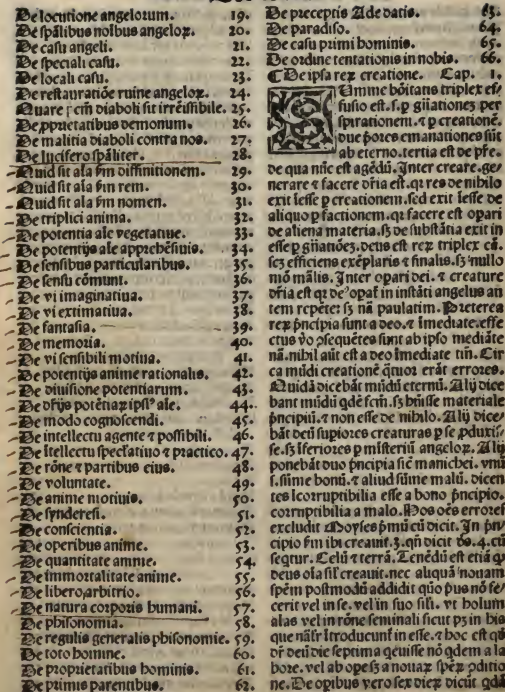 De locutione angelorum. 19.
De spãlibus nolbus angeloꝝ. 20.
De casu angeli. 21.
De speciali casu. 22.
De locali casu. 23.
De restauratiõe ruine angeloꝝ. 24.
Quare pctm diaboli sit irreissibile. 25.
De ꝓprietatibus demonum. 26.
De malitia diaboli contra nos. 27.
De lucifero spãliter. 28.
Quid sit aĩa fm diffinitionem. 29.
Quid sit aĩa fm rem. 30.
Quid sit aĩa fm nomen. 31.
De triplici anima. 32.
De potentia aĩe vegetatiue. 33.
De potentijs aĩe apprehẽsiuis. 34.
De sensibus particularibus. 35.
De sensu cõmuni. 36.
De vi imaginatiua. 37.
De vi extimatiua. 38.
De fantasia. 39.
De memoria. 40.
De vi sensibili motiua. 41.
De potentijs anime rationalis. 42.
De diuisione potentiarum. 43.
De dr̃ijs potẽtiaꝝ ipsiꝰ aĩe. 44.
De modo cognoscendi. 45.
De intellectu agente ⁊ possibili. 46.
De ĩtellectu speclatiuo ⁊ practico. 47.
De rõne ⁊ partibus eius. 48.
De voluntate. 49.
De anime motiuis. 50.
De synderesi. 51.
De conscientia. 52.
De operibus anime. 53.
De quantitate anime. 54.
De immortalitate anime. 55.
De libero arbitrio. 56.
De natura corporis humani. 57.
De phisonomia. 58.
De regulis generalis phisonomie. 59.
De toto homine. 60.
De proprietatibus hominis. 61.
De primis parentibus. 62.
De preceptis Ade datis. 63.
De paradiso. 64.
De casu primi hominis. 65.
De ordine tentationis in nobis. 66.
De ipsa reꝝ creatione. Cap. 1.
Summe bõitatis triplex ef⸗
fusio est. s. ꝑ gñationez per
spirationem. ⁊ ꝑ creationẽ.
due põres emanationes sũt
ab eterno. tertia est de pr̃e.
de qua nũc est agẽdũ. Inter creare. ge⸗
nerare ⁊ facere dr̃ia est. qꝛ res de nihilo
exit ĩ esse ꝑ creationem. sed exit ĩ esse de
aliquo ꝑ factionem. qꝛ facere est opari
de aliena materia. sꝫ de substãtia exit in
esse ꝑ gñatiõeꝫ. deus est reꝝ triplex cã.
scꝫ efficiens exẽplaris ⁊ finalis. sꝫ nullo
mõ mãlis. Inter opari dei. ⁊ creature
dr̃ia est qꝛ deꝰ opaꞇ̃ in instãti angelus an
tem repẽte: sꝫ nã paulatim. Preterea
reꝝ pñcipia sunt a deo. ⁊ ĩmediate. effe
ctus ꝟo ꝓsequẽtes sunt ab ipso mediãte
nã. nihil aũt est a deo ĩmediate tm̃. Cir
ca mũdi creationẽ q̃tuor erãt errores.
Quidã dicebãt mũdũ eternũ. Alij dice
bant mũdũ qdẽ fcm̃. sꝫ hũisse materiale
pñcipiũ. ⁊ non esse de nihilo. Alij dice⸗
bãt deũ supiores creaturas ꝑ se ꝓduxis⸗
se. sꝫ ĩferiores ꝑ misteriũ angeloꝝ. Alij
ponebãt duo pñcipia sic̃ manichei. vnũ
s. sũme bonũ. ⁊ aliud sũme malũ. dicen
tes ĩcorruptibilia esse a bono pñcipio.
corruptibilia a malo. Hos oẽs errores
excludit Moyses pmũ cũ dicit. In pñ⸗
cipio
seqtur. Celũ ⁊ terrã. Tenẽdũ est etiã qꝫ
deus oĩa sil̃ creauit. nec aliquã nouam
spẽm postmodũ addidit quĩ pus nõ fe⸗
cerit vel in se. vel in suo sil̃i. vt holum
alas vel in rõne seminali sicut pꝫ in his
que nãlr̃ ĩtroducunꞇ̃ in esse. ⁊ hoc est qꝫ
dr̃ deũ die septima qeuisse nõ qdem a la
bore. vel ab opeꝫ a nouaꝝ spẽꝝ ꝓditio
ne. De opibus vero sex dieꝝ dicit